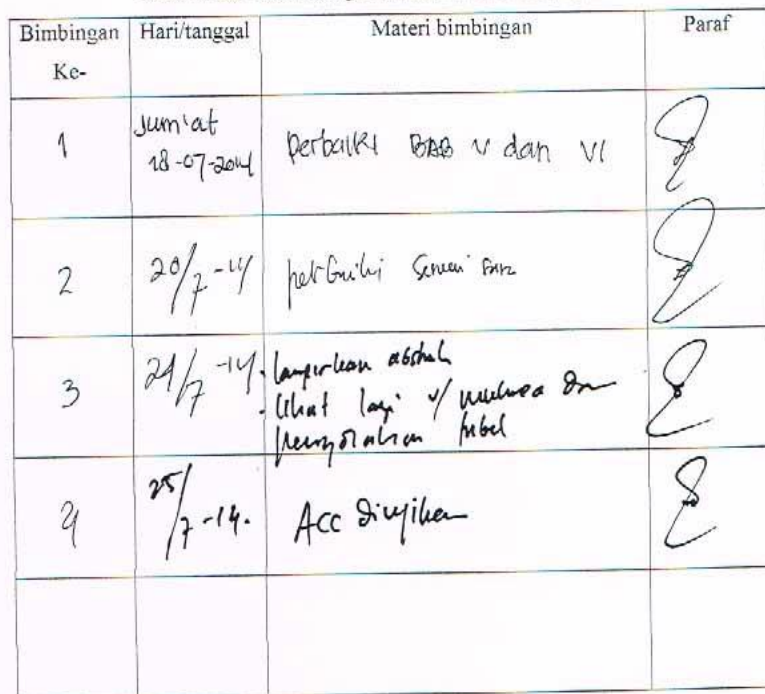 Bimbingan Ke- Hari/tanggal Materi bimbingan Paraf
1 Jum'at 18-07-2014 perbaiki BAB V dan VI
2 20/7-14 perbaiki sesuai
3 24/7-14 . lampirkan abstrak
. lihat lagi
tabel
4 25/7-14. Acc diujikan